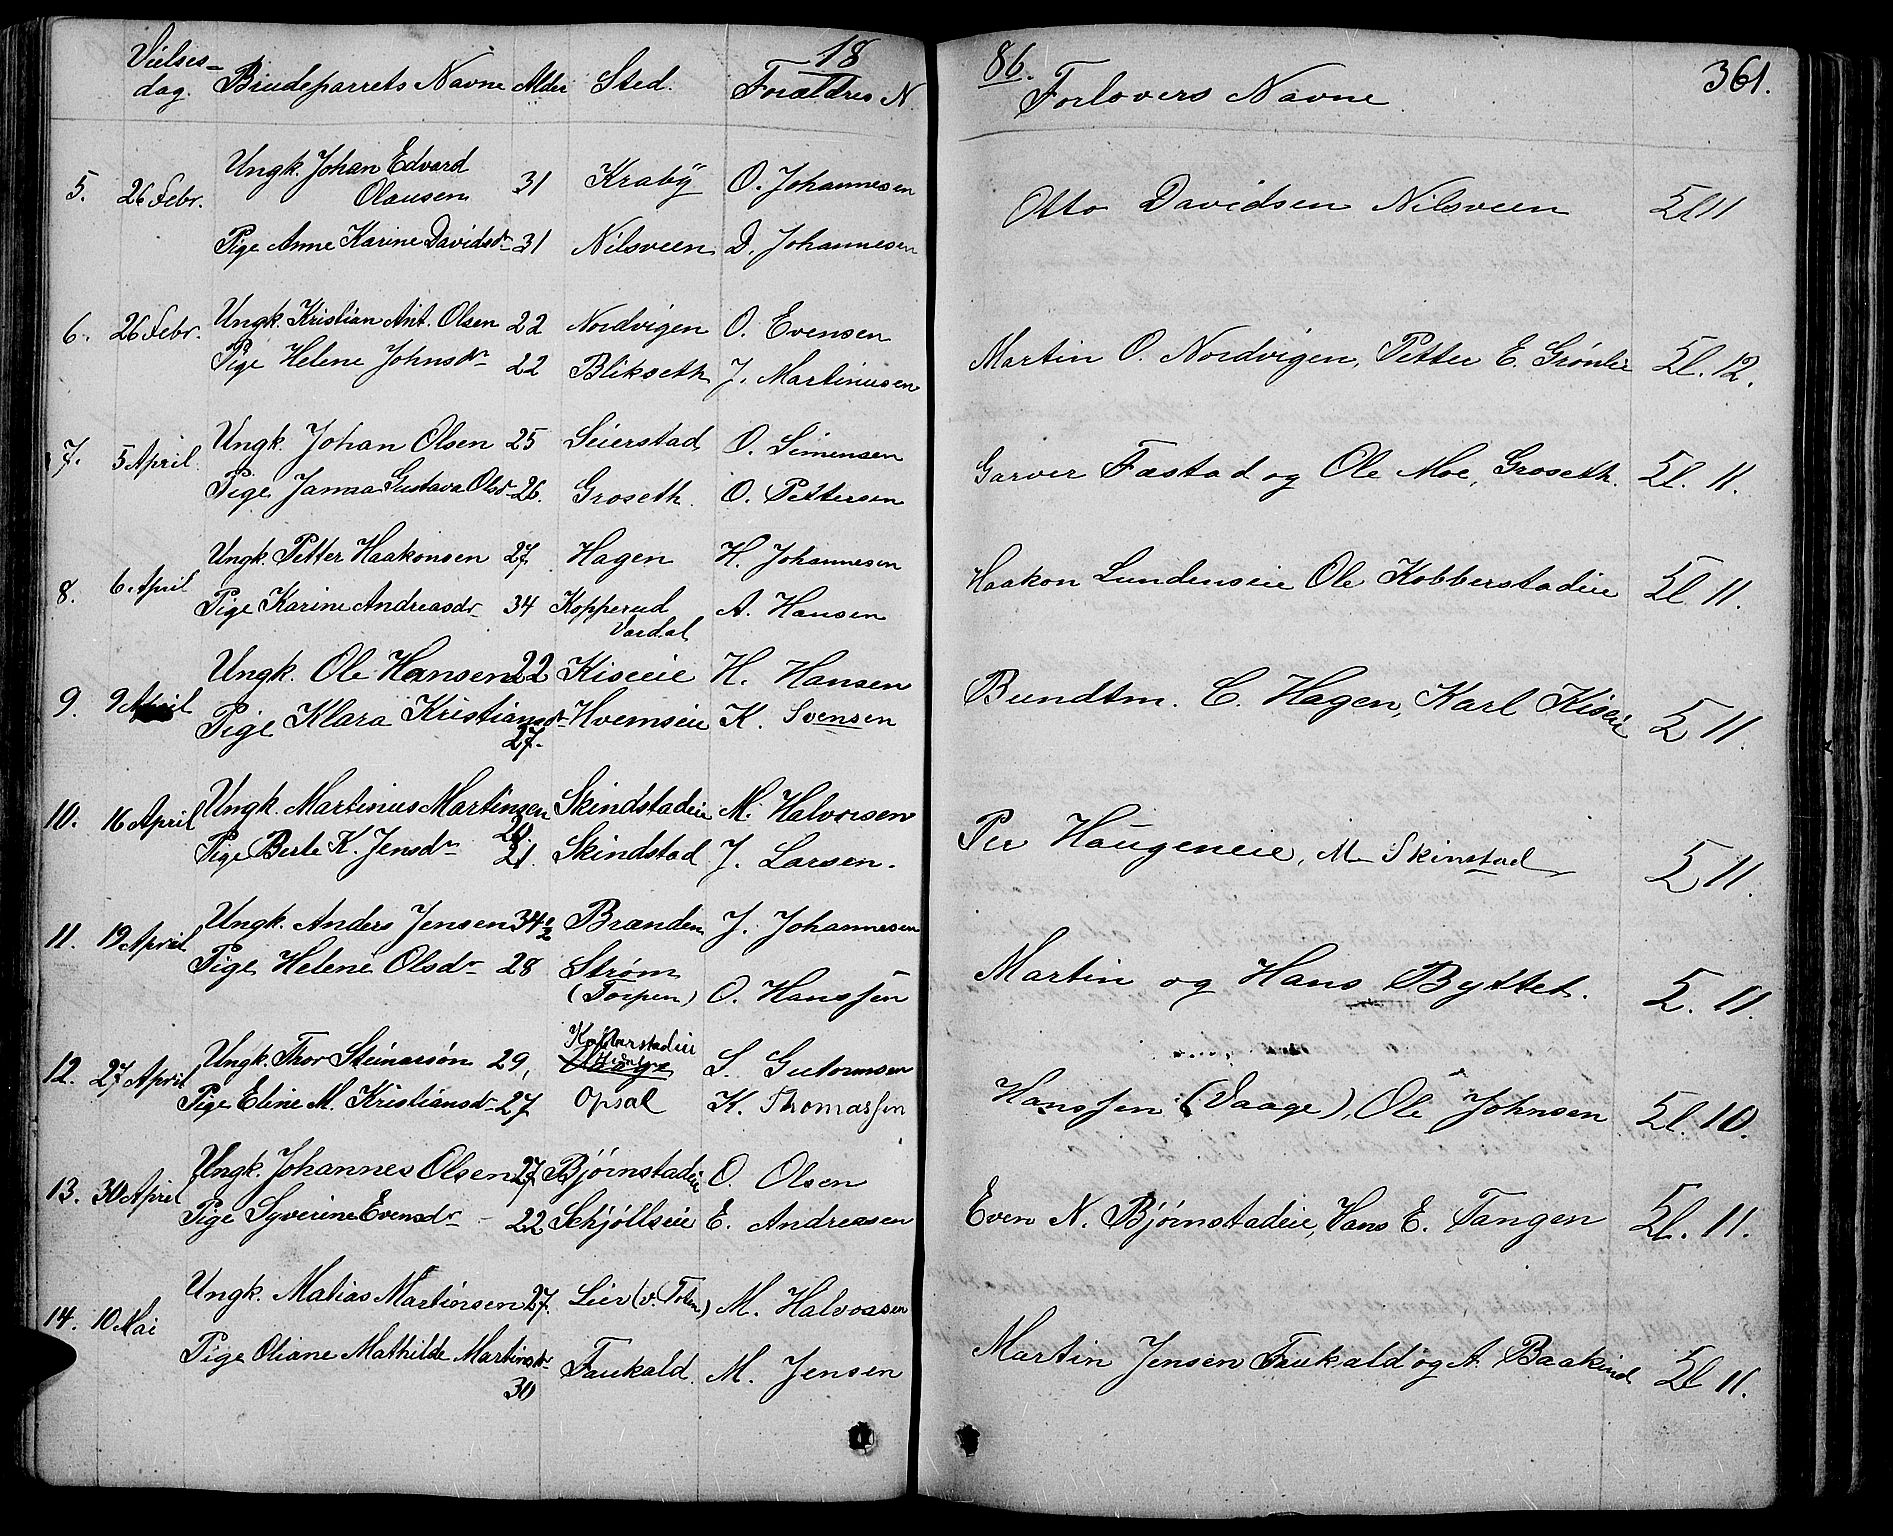 Vielses-
dag. Brudeparrets Navne Alder Sted. Forældres N.
18
86. 361.
Forlovers Navne
5. 26 Febr. Ungk. Johan Edvard
Olausen 31 Kraby O. Johannesen
Pige Anne Karine Davidsdr 31 Nilsveen D. Johannesen
Otto Davidsen Nilsveen 5l 11
6. 26 Febr. Ungk. Kristian Ant. Olsen 22 Nordvigen O. Evensen
Pige Helene Johnsdr 22 Blikseth J. Martinusen
Martin O. Nordvigen, Petter E. Grønlie 5l. 12.
7. 5 April. Ungk. Johan Olsen 25 Seierstad O. Simensen
Pige Janna Gustava Olsdr 26. Groseth. O. Pettersen
Garver Fæstad og Ole Moe, Groseth. 5l. 11.
8. 6 April Ungk. Petter Haakonsen 27 Hagen H. Johannesen
Pige Karine Andreasdr 34 Kopperud A. Hansen
Vardal
Haakon Lundenseie Ole Kobberstadeie 5l 11.
9. 9 April Ungk. Ole Hansen 22 Kiseeie H. Hansen
Pige Klara Kristiansdr Hvemseie K. Svensen
27.
Bundtm. C. Hagen, Karl Kiseie 5 11.
10. 16 April Ungk. Martinus Martinsen Skindstadeie M. Halvorsen
28.
Pige Berte K. Jensdr 21. Skindstad J. Larsen.
Per Haugeneie, M Skinstad 5 11.
11. 19 April Ungk. Anders Jensen 34½ Brænden J. Johannesen
Pige Helene Olsdr 28 Strøm
(Torpen) O. Hanssen
Martin og Hans Byttet. 5. 11.
12. 27 April Ungk. Thor Steinarsøn 29, S. Gutormsen
Pige Eline M. Kristiansdr 27 Opsal K. Thomassen
Hanssen (Vaage), Ole Johnsen 5l. 10.
13. 30 April Ungk. Johannes Olsen 27 Bjørnstadeie O. Olsen
Pige Syverine Evensdr 22 Schjøllseie E. Andreasen
Even N. Bjørnstadeie, Hans E. Tangen 5l. 11.
14. 10 Mai Ungk. Matias Martinsen 27. Lier (v. Toten) M. Halvorsen
Pige Oliane Mathilde Martinsdr Faukald. M. Jensen
30
Martin Jensen Faukald og A. Baakind 5l 11.